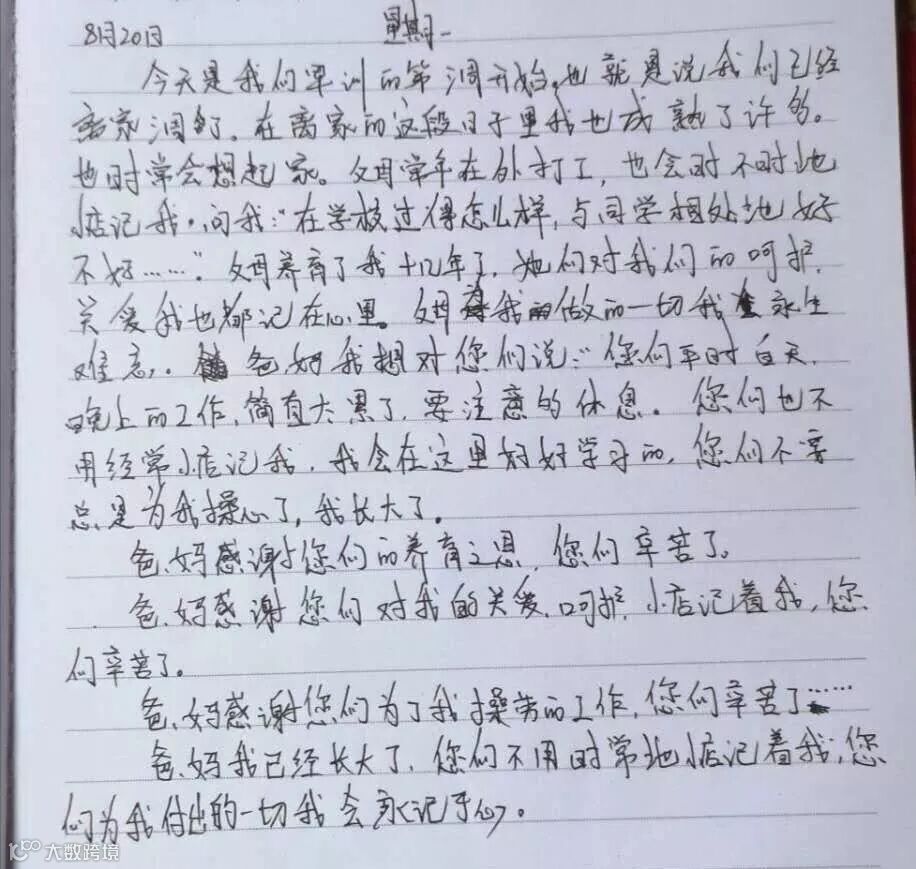 8月20日 星期一
今天是我们军训的第一周开始，也就是说我们已经
离家一周多了。在离家的这段日子里我也成熟了许多。
也时常会想起家。父母常年在外打工，也会时不时地
惦记我，问我：“在学校过得怎么样，与同学相处地好
不好……”。父母养育了我十几年了，他们对我们的呵护、
关爱我也都记在心里。父母为我的做的一切我永生
难忘，爸、妈我想对您们说：“您们平时白天、
晚上的工作，简直太累了，要注意的休息。您们也不
用经常惦记我，我会在这里好好学习的，您们不要
总是为我操心了，我长大了。
爸、妈感谢与您们的养育之恩，您们辛苦了。
爸、妈感谢您们对我的关爱、呵护、惦记着我，您
们辛苦了。
爸、妈感谢您们为了我操劳的工作，您们辛苦了……
爸、妈我已经长大了，您们不用时常地惦记着我，您
们为我付出的一切我会永记于心。
大数跨境